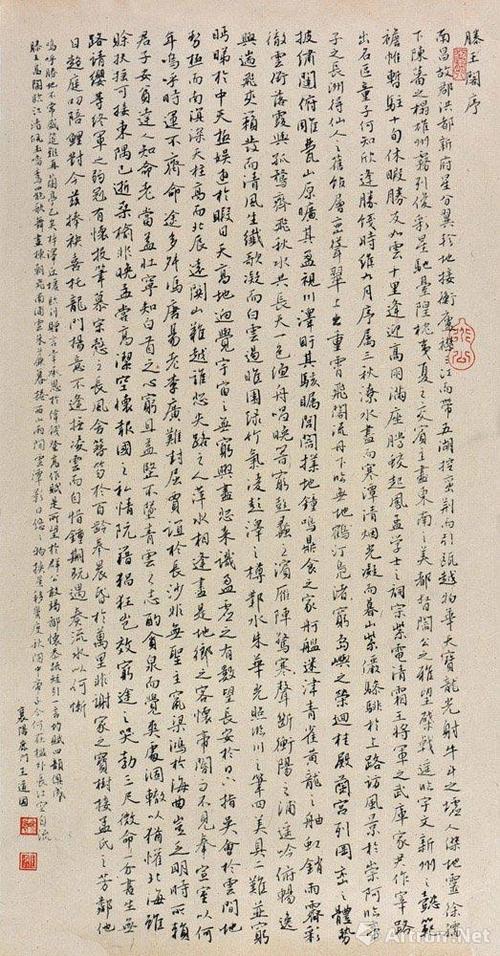 滕王阁序
南昌故郡洪都新府星分翼軫地接衡廬襟三江而帶五湖控蠻荆而引甌越物華天寶龍光射牛斗之墟人傑地靈徐孺
下陳蕃之榻雄州霧列俊彩星馳臺隍枕夷夏之交賓主盡東南之美都督閻公之雅望棨戟遥臨宇文新州之懿範
襜帷暫駐十旬休暇勝友如雲千里逢迎高朋滿座騰蛟起鳳孟學士之詞宗紫電清霜王將軍之武庫家君作宰路
出名區童子何知躬逢勝餞時維九月序屬三秋潦水盡而寒潭清煙光凝而暮山紫儼驂騑於上路訪風景於崇阿臨帝
子之長洲得仙人之舊館層巒聳翠上出重霄飛閣流丹下臨無地鶴汀鳧渚窮島嶼之縈迴桂殿蘭宫列岡巒之體勢
披繡闥俯雕甍山原曠其盈視川澤盱其駭矚閭閻撲地鐘鳴鼎食之家舸艦迷津青雀黄龍之舳虹銷雨霽彩
徹雲衢落霞與孤鶩齊飛秋水共長天一色漁舟唱晚響窮彭蠡之濱雁陣驚寒聲斷衡陽之浦遥吟俯暢逸
興遄飛爽籟發而清風生纖歌凝而白雲遏睢園绿竹氣凌彭澤之樽鄴水朱華光照臨川之筆四美具二難並窮
睇眄於中天極娱遊於暇日天高地迥覺宇宙之無窮興盡悲來識盈虚之有數望長安於日下指吴會於雲間地
勢極而南溟深天柱高而北辰遠關山難越誰悲失路之人萍水相逢盡是他鄉之客懷帝閽而不見奉宣室以何
年嗚呼時運不齊命途多舛馮唐易老李廣難封屈賈誼於長沙非無聖主竄梁鴻於海曲豈乏明時所賴
君子安貧達人知命老當益壯寧知白首之心窮且益堅不墜青雲之志酌貪泉而覺爽處涸轍以猶懽北海雖
賒扶摇可接東隅已逝桑榆非晚孟嘗高潔空懷報國之私情阮籍猖狂豈效窮途之哭勃三尺微命一介書生無
路請纓等終軍之弱冠有懷投筆慕宗慤之長風舍簪笏於百齡奉晨昏於萬里非謝家之寶樹接孟氏之芳鄰他
日趨庭叨陪鯉對今兹捧袂喜托龍門楊意不逢撫凌雲而自惜鍾期既遇奏流水以何慚
嗚呼勝地不常盛筵難再蘭亭已矣梓澤丘墟臨别贈言幸承恩於偉餞登高作賦是所望於群公敢竭鄙懷恭疏短引一言均賦四韻俱成
滕王高閣臨江渚佩玉鳴鸞罷歌舞畫棟朝飛南浦雲朱簾暮捲西山雨閒雲潭影日悠悠物换星移幾度秋閣中帝子今何在檻外長江空自流
襄陽鹿門王道國
Artron.Net